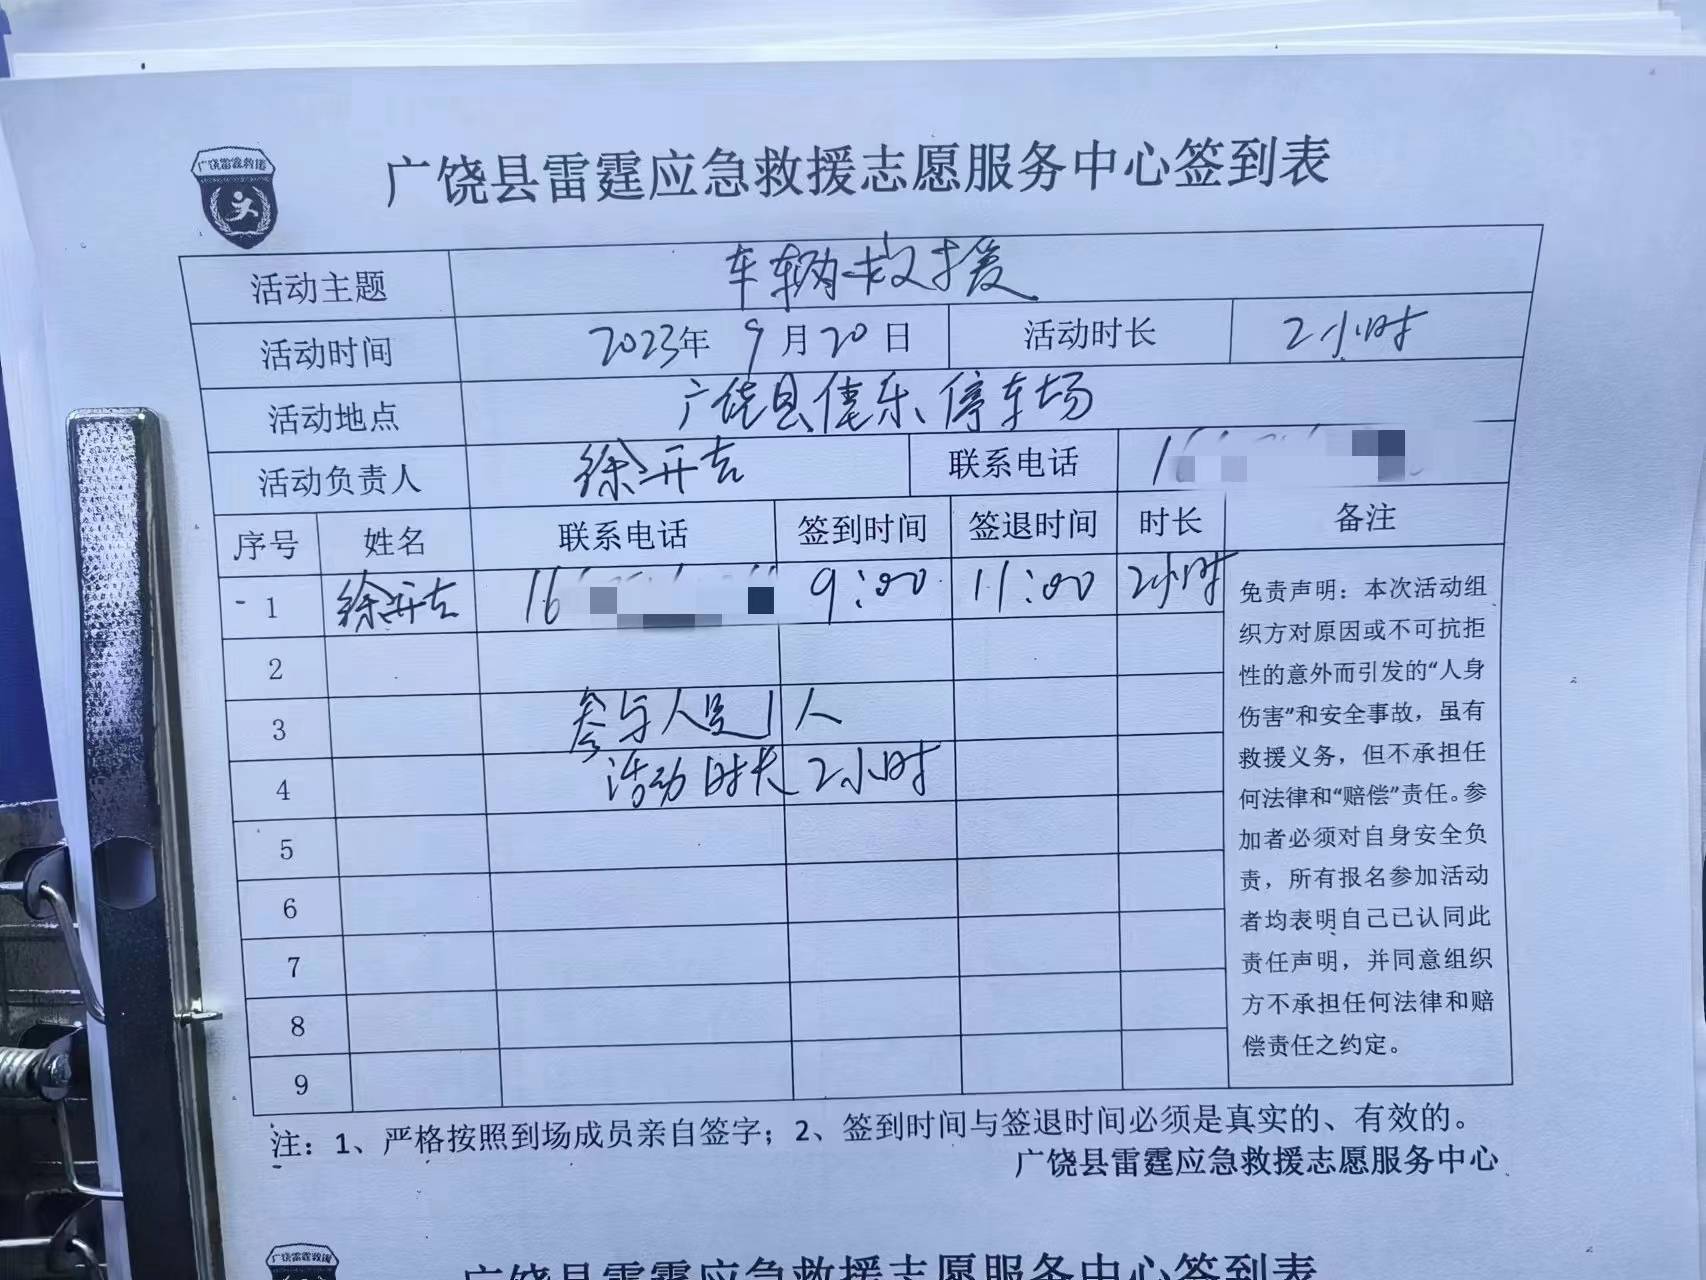 广饶雷霆救援
广饶县雷霆应急救援志愿服务中心签到表
活动主题 车辆救援
活动时间 2023年 9月20日 活动时长 2小时
活动地点 广饶县佳乐停车场
活动负责人 徐开吉 联系电话 1
序号 姓名 联系电话 签到时间 签退时间 时长 备注
1 徐开吉 16 9:00 11:00 2小时
2
3 参与人员1人
4 活动时长2小时
5
6
7
8
9
免责声明：本次活动组
织方对原因或不可抗拒
性的意外而引发的“人身
伤害”和安全事故，虽有
救援义务，但不承担任
何法律和“赔偿”责任。参
加者必须对自身安全负
责，所有报名参加活动
者均表明自己已认同此
责任声明，并同意组织
方不承担任何法律和赔
偿责任之约定。
注：1、严格按照到场成员亲自签字；2、签到时间与签退时间必须是真实的、有效的。
广饶县雷霆应急救援志愿服务中心
广饶雷霆救援
广饶县雷霆应急救援志愿服务中心签到表